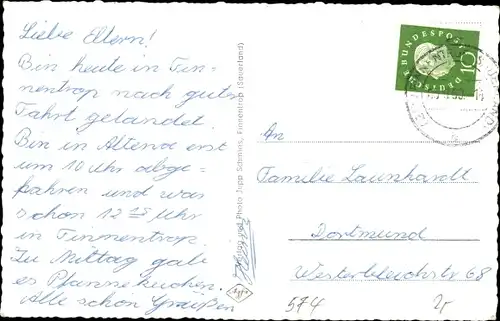 Liebe Eltern!
Bin heute in Fin-
nentrop nach guter
Fahrt gelandet.
Bin in Altena erst
um 10 Uhr abge-
fahren und war
schon 12 15 Uhr
in Finnentrop.
Zu Mittag gab
es Pfannekuchen.
Alle schön Grüßen
Photo Jupp Schmies, Finnentrop (Sauerland)
DEUTSCHE BUNDESPOST
10
An
Familie Launhardt
Dortmund
Westerbleichstr 68
574